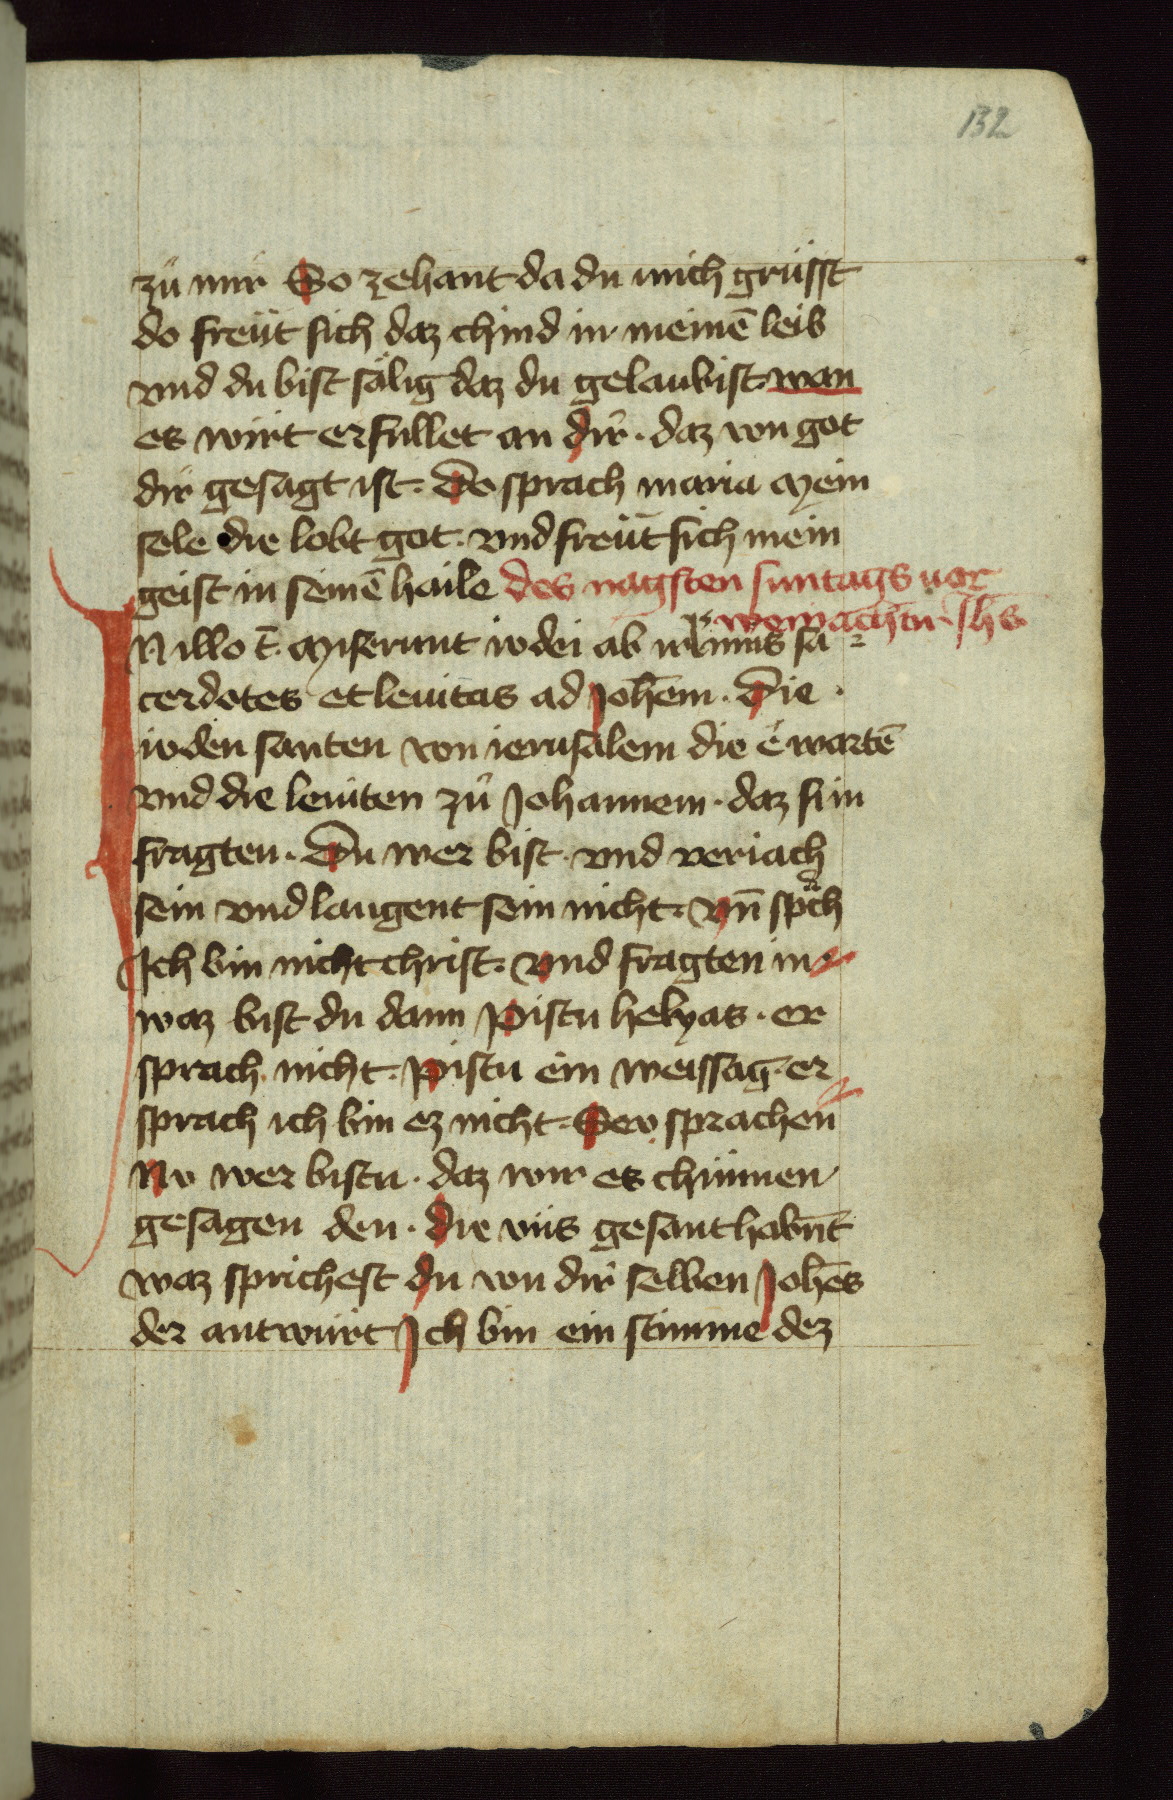 132
zů mir So zehant da du mich grüsst
do freüt sich daz chind in meinē leib
vnd du bist sälig daz du gelaubist wan
es wirt erfullet an dir · daz von got
dir gesagt ist · Do sprach maria Mein
sele die lobt got · vnd freüt sich mein
geist in seinē haile des nagsten suntags vor
wewachtn · Jhs
In illo t̄ Miserunt iudei ab ierlimis sa=
cerdotes et leuitas ad Johem · Die ·
iuden santen von ierusalem die ewartē
vnd die leuiten zů Johannem · daz si in
fragten · Du wer bist · vnd veriach
sein vnd laugent sein nicht · Vn̄ spͣch
Ich bin nicht christ · vnd fragten in
waz bist du dann Pistu helyas · er
sprach nicht · Pistu ein weissag · er
sprach ich bin ez nicht · Sev sprachen
Nv wer bistu · daz wir es chünnen
gesagen den · die vns gesant habnt
waz sprichest du von dir selben Johēs
der antwürt Ich bin ein stimme dez